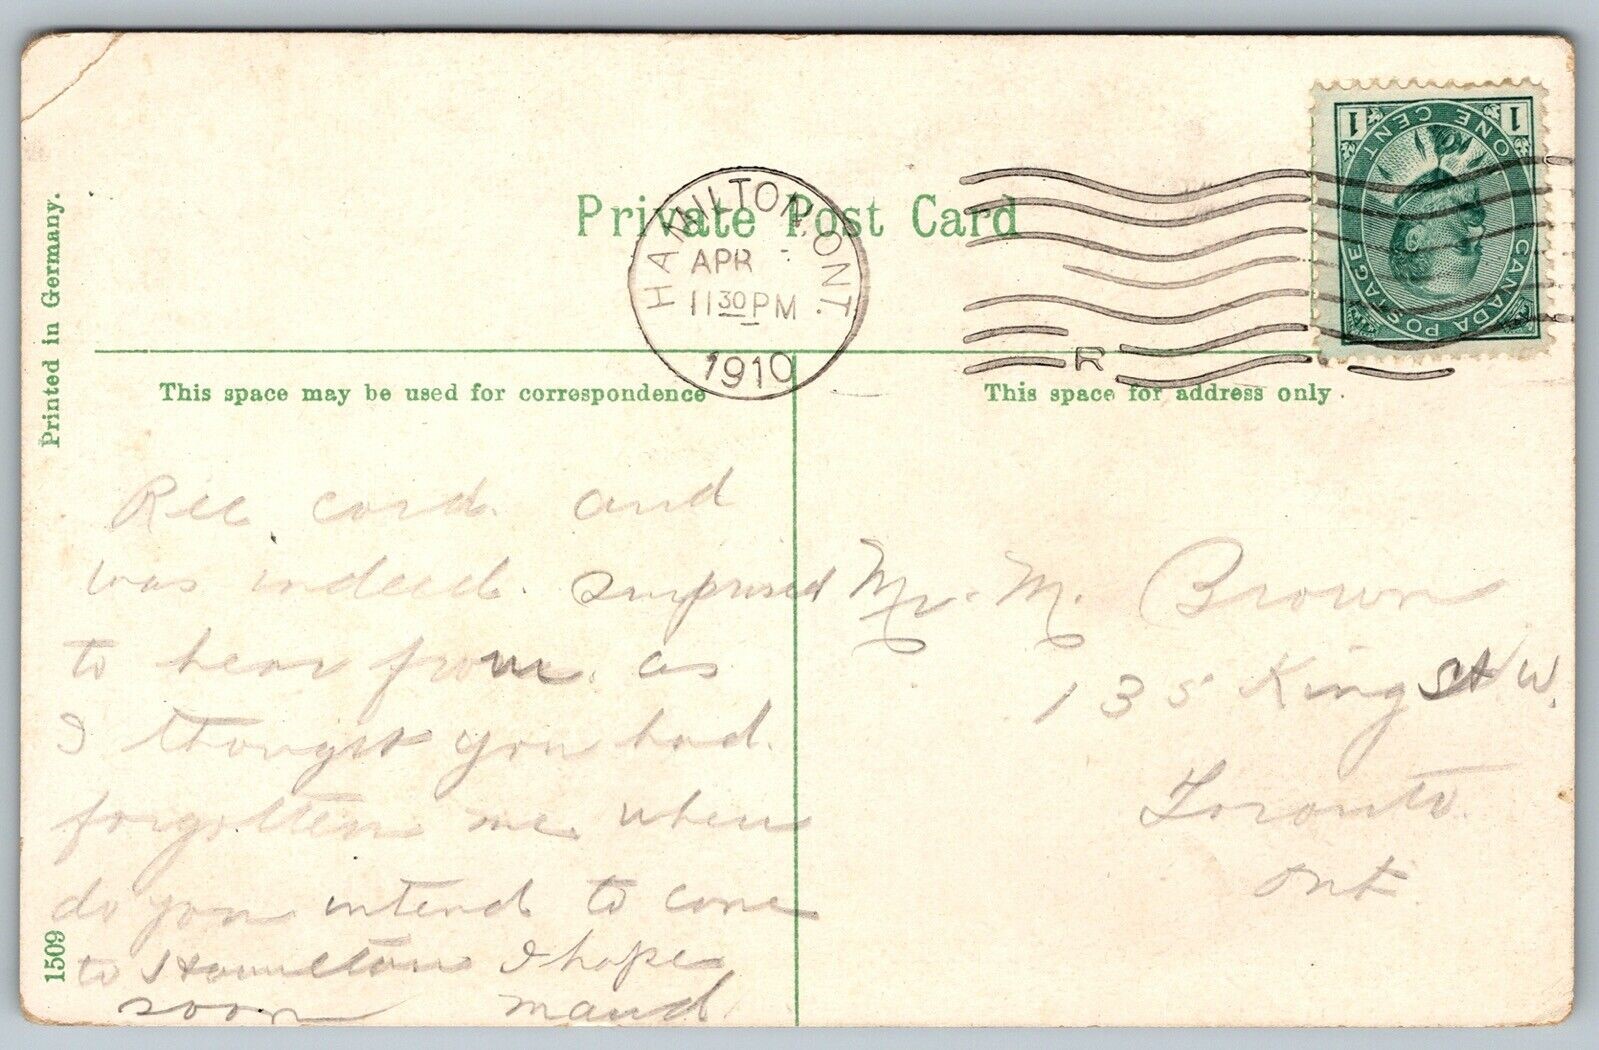 Private Post Card
HAMILTON, ONT.
APR
11 30 PM
1910
R
1 1
CANADA POSTAGE
ONE CENT
Printed in Germany.
1509
This space may be used for correspondence
This space for address only
Rec card. and
was indeed. surprised
to hear from. as
I thought you had.
forgotten me when
do you intend to come
to Hamilton I hope
soon maud
Mr. M. Brown
135 King St W.
Toronto.
Ont.